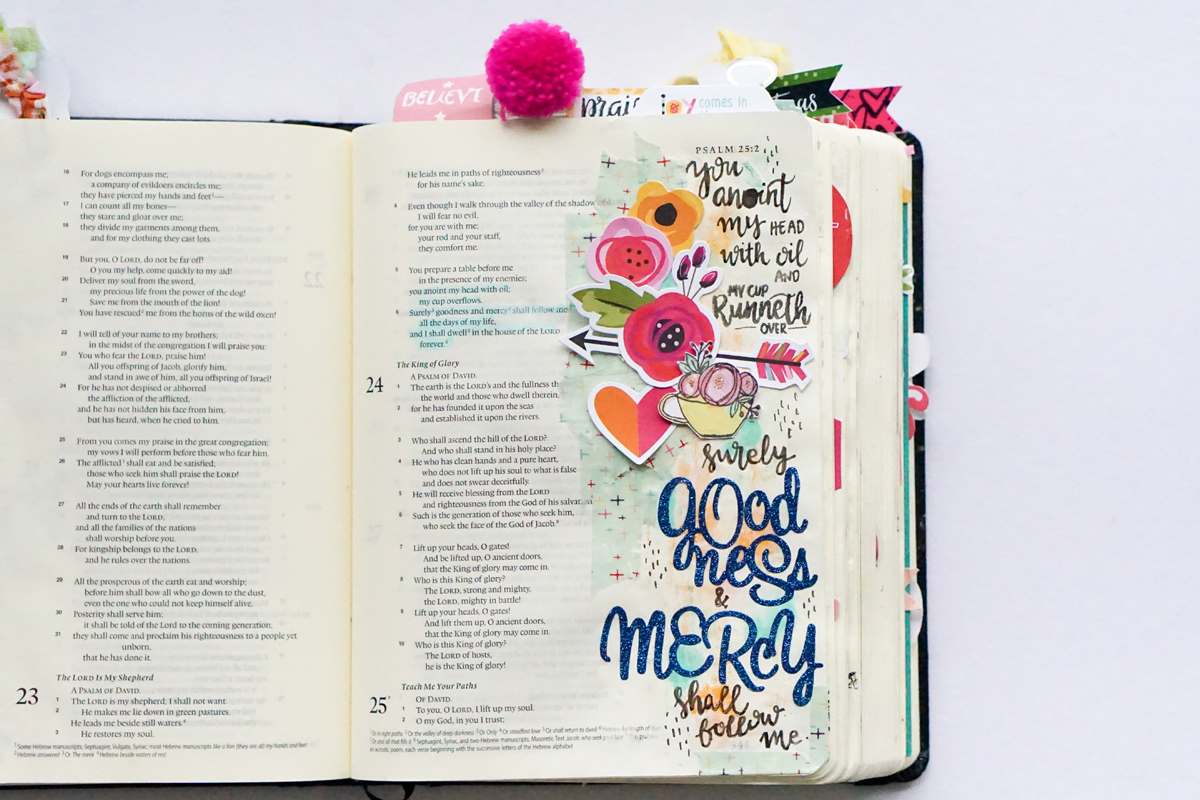 BELIEVE
prais
joy comes in
PSALM 25:2
16 For dogs encompass me;
a company of evildoers encircles me;
they have pierced my hands and feet¹—
17 I can count all my bones—
they stare and gloat over me;
18 they divide my garments among them,
and for my clothing they cast lots.
19 But you, O LORD, do not be far off!
O you my help, come quickly to my aid!
20 Deliver my soul from the sword,
my precious life from the power of the dog!
21 Save me from the mouth of the lion!
You have rescued² me from the horns of the wild oxen!
22 I will tell of your name to my brothers;
in the midst of the congregation I will praise you:
23 You who fear the LORD, praise him!
All you offspring of Jacob, glorify him,
and stand in awe of him, all you offspring of Israel!
24 For he has not despised or abhorred
the affliction of the afflicted,
and he has not hidden his face from him,
but has heard, when he cried to him.
25 From you comes my praise in the great congregation;
my vows I will perform before those who fear him.
26 The afflicted³ shall eat and be satisfied;
those who seek him shall praise the LORD!
May your hearts live forever!
27 All the ends of the earth shall remember
and turn to the LORD,
and all the families of the nations
shall worship before you.
28 For kingship belongs to the LORD,
and he rules over the nations.
29 All the prosperous of the earth eat and worship;
before him shall bow all who go down to the dust,
even the one who could not keep himself alive.
30 Posterity shall serve him;
it shall be told of the Lord to the coming generation;
31 they shall come and proclaim his righteousness to a people yet
unborn,
that he has done it.
THE LORD IS MY SHEPHERD
23 A PSALM OF DAVID.
1 The LORD is my shepherd; I shall not want.
2 He makes me lie down in green pastures.
He leads me beside still waters.⁴
3 He restores my soul.
¹ Some Hebrew manuscripts, Septuagint, Vulgate, Syriac; most Hebrew manuscripts like a lion [they are at] my hands and feet
² Hebrew answered ³ Or The meek ⁴ Hebrew beside waters of rest
He leads me in paths of righteousness¹
for his name's sake.
4 Even though I walk through the valley of the shadow of
I will fear no evil,
for you are with me;
your rod and your staff,
they comfort me.
5 You prepare a table before me
in the presence of my enemies;
you anoint my head with oil;
my cup overflows.
6 Surely³ goodness and mercy⁴ shall follow me
all the days of my life,
and I shall dwell⁵ in the house of the LORD
forever.⁶
The King of Glory
24 A PSALM OF DAVID.
1 The earth is the LORD's and the fullness th
the world and those who dwell therein,
2 for he has founded it upon the seas
and established it upon the rivers.
3 Who shall ascend the hill of the LORD?
And who shall stand in his holy place?
4 He who has clean hands and a pure heart,
who does not lift up his soul to what is false
and does not swear deceitfully.
5 He will receive blessing from the LORD
and righteousness from the God of his salvation
6 Such is the generation of those who seek him,
who seek the face of the God of Jacob.⁸
7 Lift up your heads, O gates!
And be lifted up, O ancient doors,
that the King of glory may come in.
8 Who is this King of glory?
The LORD, strong and mighty,
the LORD, mighty in battle!
9 Lift up your heads, O gates!
And lift them up, O ancient doors,
that the King of glory may come in.
10 Who is this King of glory?
The LORD of hosts,
he is the King of glory!
Teach Me Your Paths
25 OF DAVID.
1 To you, O LORD, I lift up my soul.
2 O my God, in you I trust;
¹ Or in right paths ² Or the valley of deep darkness ³ Or Only ⁴ Or steadfast love ⁵ Or shall return to dwell ⁶ Hebrew for length of
⁷ Or and all that fills it ⁸ Septuagint, Syriac, and two Hebrew manuscripts; Masoretic Text Jacob, who seek
acrostic poem, each verse beginning with the successive letters of the Hebrew alphabet
you
anoint
my HEAD
with oil
AND
MY CUP
Runneth
OVER
surely
good
ness
&
MERCY
shall
follow
me
543